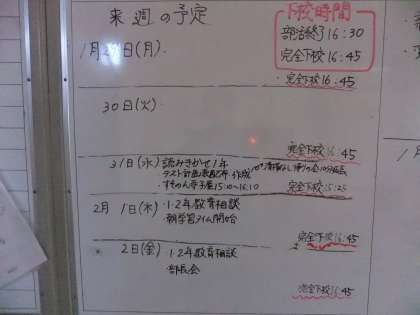 来週の予定
下校時間
部活終了16:30
完全下校16:45
1月29日(月)
・完全下校16:45
30日(火)
完全下校16:45
31日(水) 読みきかせ1年
・テスト計画表配布 作成
・すものん寺子屋15:10~16:10
完全下校15:25
2月 1日(木) ・1・2年教育相談
・朝学習タイム開始
完全下校16:45
2日(金) ・1・2年教育相談
・部長会
完全下校16:45